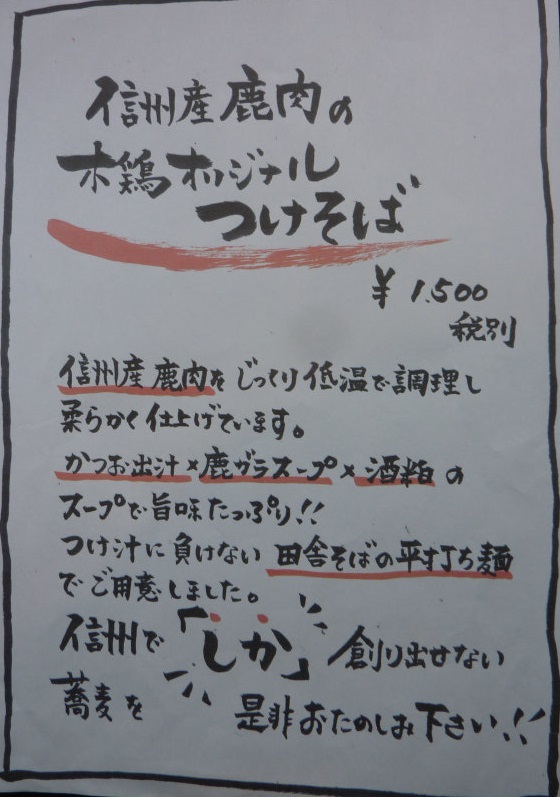 信州産鹿肉の
木鶏オリジナル
つけそば
¥1.500
税別
信州産鹿肉をじっくり低温で調理し
柔らかく仕上げています。
かつお出汁×鹿ガラスープ×酒粕の
スープで旨味たっぷり!!
つけ汁に負けない田舎そばの平打ち麺
でご用意しました。
信州で「しか」創り出せない
蕎麦を是非おたのしみ下さい!!